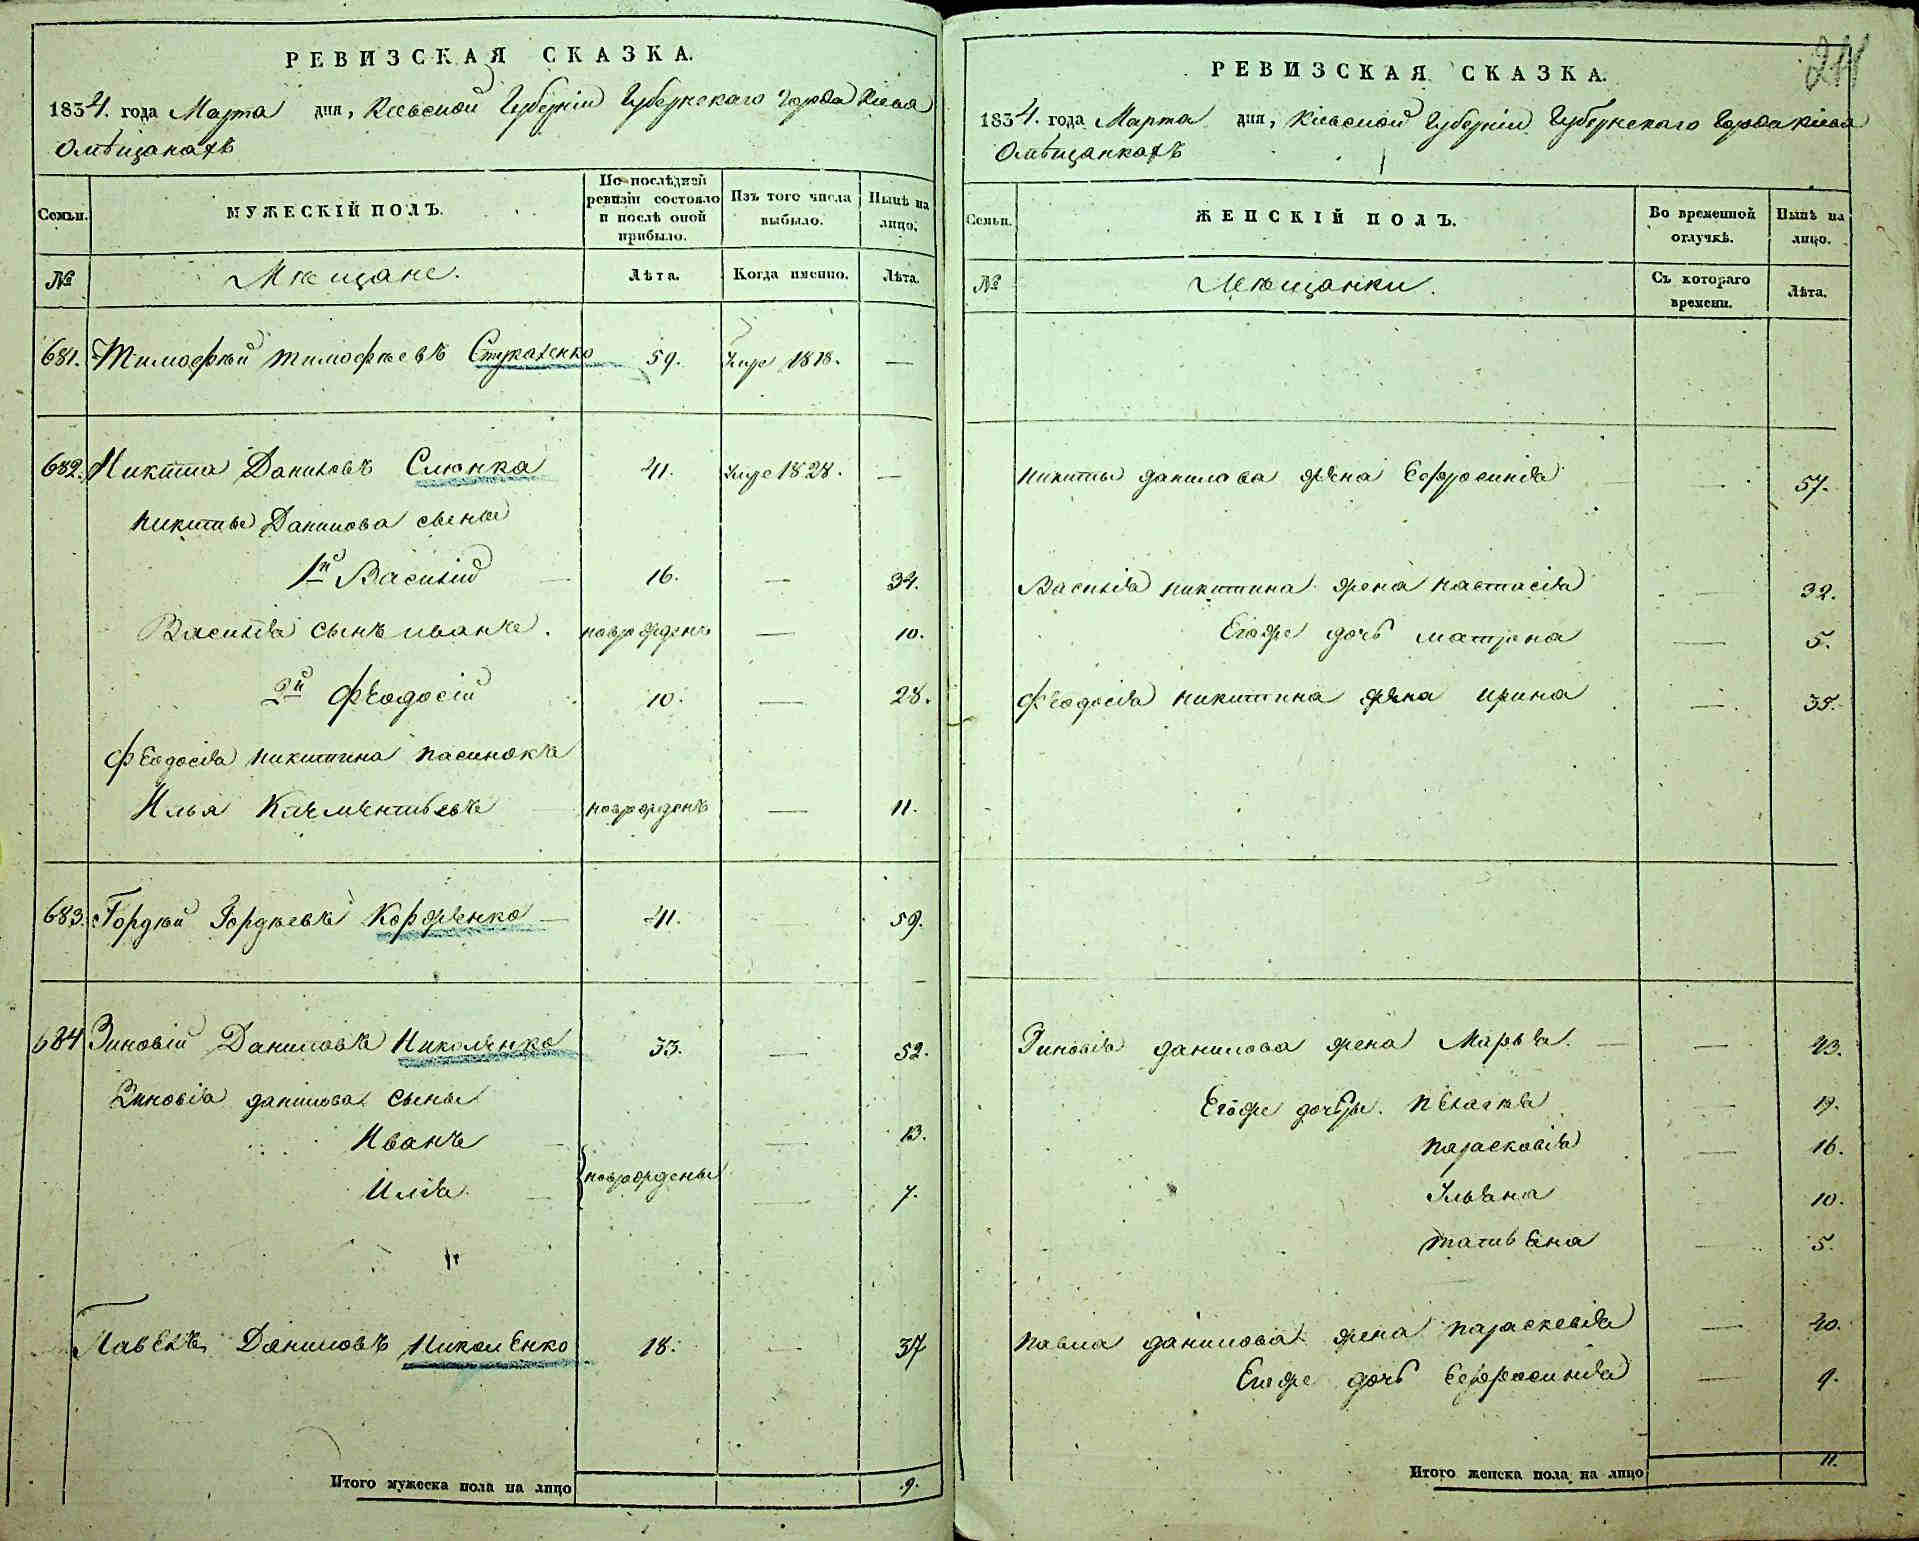 РЕВИЗСКАЯ СКАЗКА.
1834. года Марта дня, Кіевской Губерніи Губернскаго города Кіева
Омѣщанахъ
Семьи.
МУЖЕСКІЙ ПОЛЪ.
По послѣдней ревизіи состояло и послѣ оной прибыло.
Изъ того числа выбыло.
Нынѣ на лицо.
№
Мѣщане.
Лѣта.
Когда именно.
Лѣта.
681. Тимофѣй Тимофѣевъ Стукаленко 59. 1818. —
682. Никита Даниловъ Слюнка 41. 1828. —
Никиты Данилова сыны
1й Василий — 16. — 34.
Василія сынъ Иванъ. новрожденъ — 10.
2й Феодосій 10. — 28.
Феодосія Никитина пасинокъ
Илья Климентьевъ новрожденъ — 11.
683. Гордѣй Гордѣевъ Корженко — 41. 59.
684 Зиновій Даниловъ Николенко 33. — 52.
Зиновія Данилова сыны
Иванъ — 13.
новрождены
Илія — 7.
Павелъ Даниловъ Николенко 18. — 37
Итого мужеска пола на лицо 9.
211
РЕВИЗСКАЯ СКАЗКА.
1834. года Марта дня, Кіевской Губерніи Губернскаго города Кіева
Омѣщанкахъ
Семьи.
ЖЕНСКІЙ ПОЛЪ.
Во временной отлучкѣ.
Нынѣ на лицо.
№
Мѣщанки.
Съ котораго времени.
Лѣта.
Никиты Данилова жена Ефросинія — 57.
Василія Никитина жена Настасія — 32.
Егоже дочь Матрена — 5.
Феодосія Никитина жена Ирина — 35.
Зиновія Данилова жена Марья. — 43.
Егоже дочери. Пелагия — 19.
Парасковія — 16.
Ульяна 10.
Татьяна — 5.
Павла Данилова жена Параскевія — 40.
Егоже дочь Ефросинія — 9.
Итого женска пола на лицо 11.